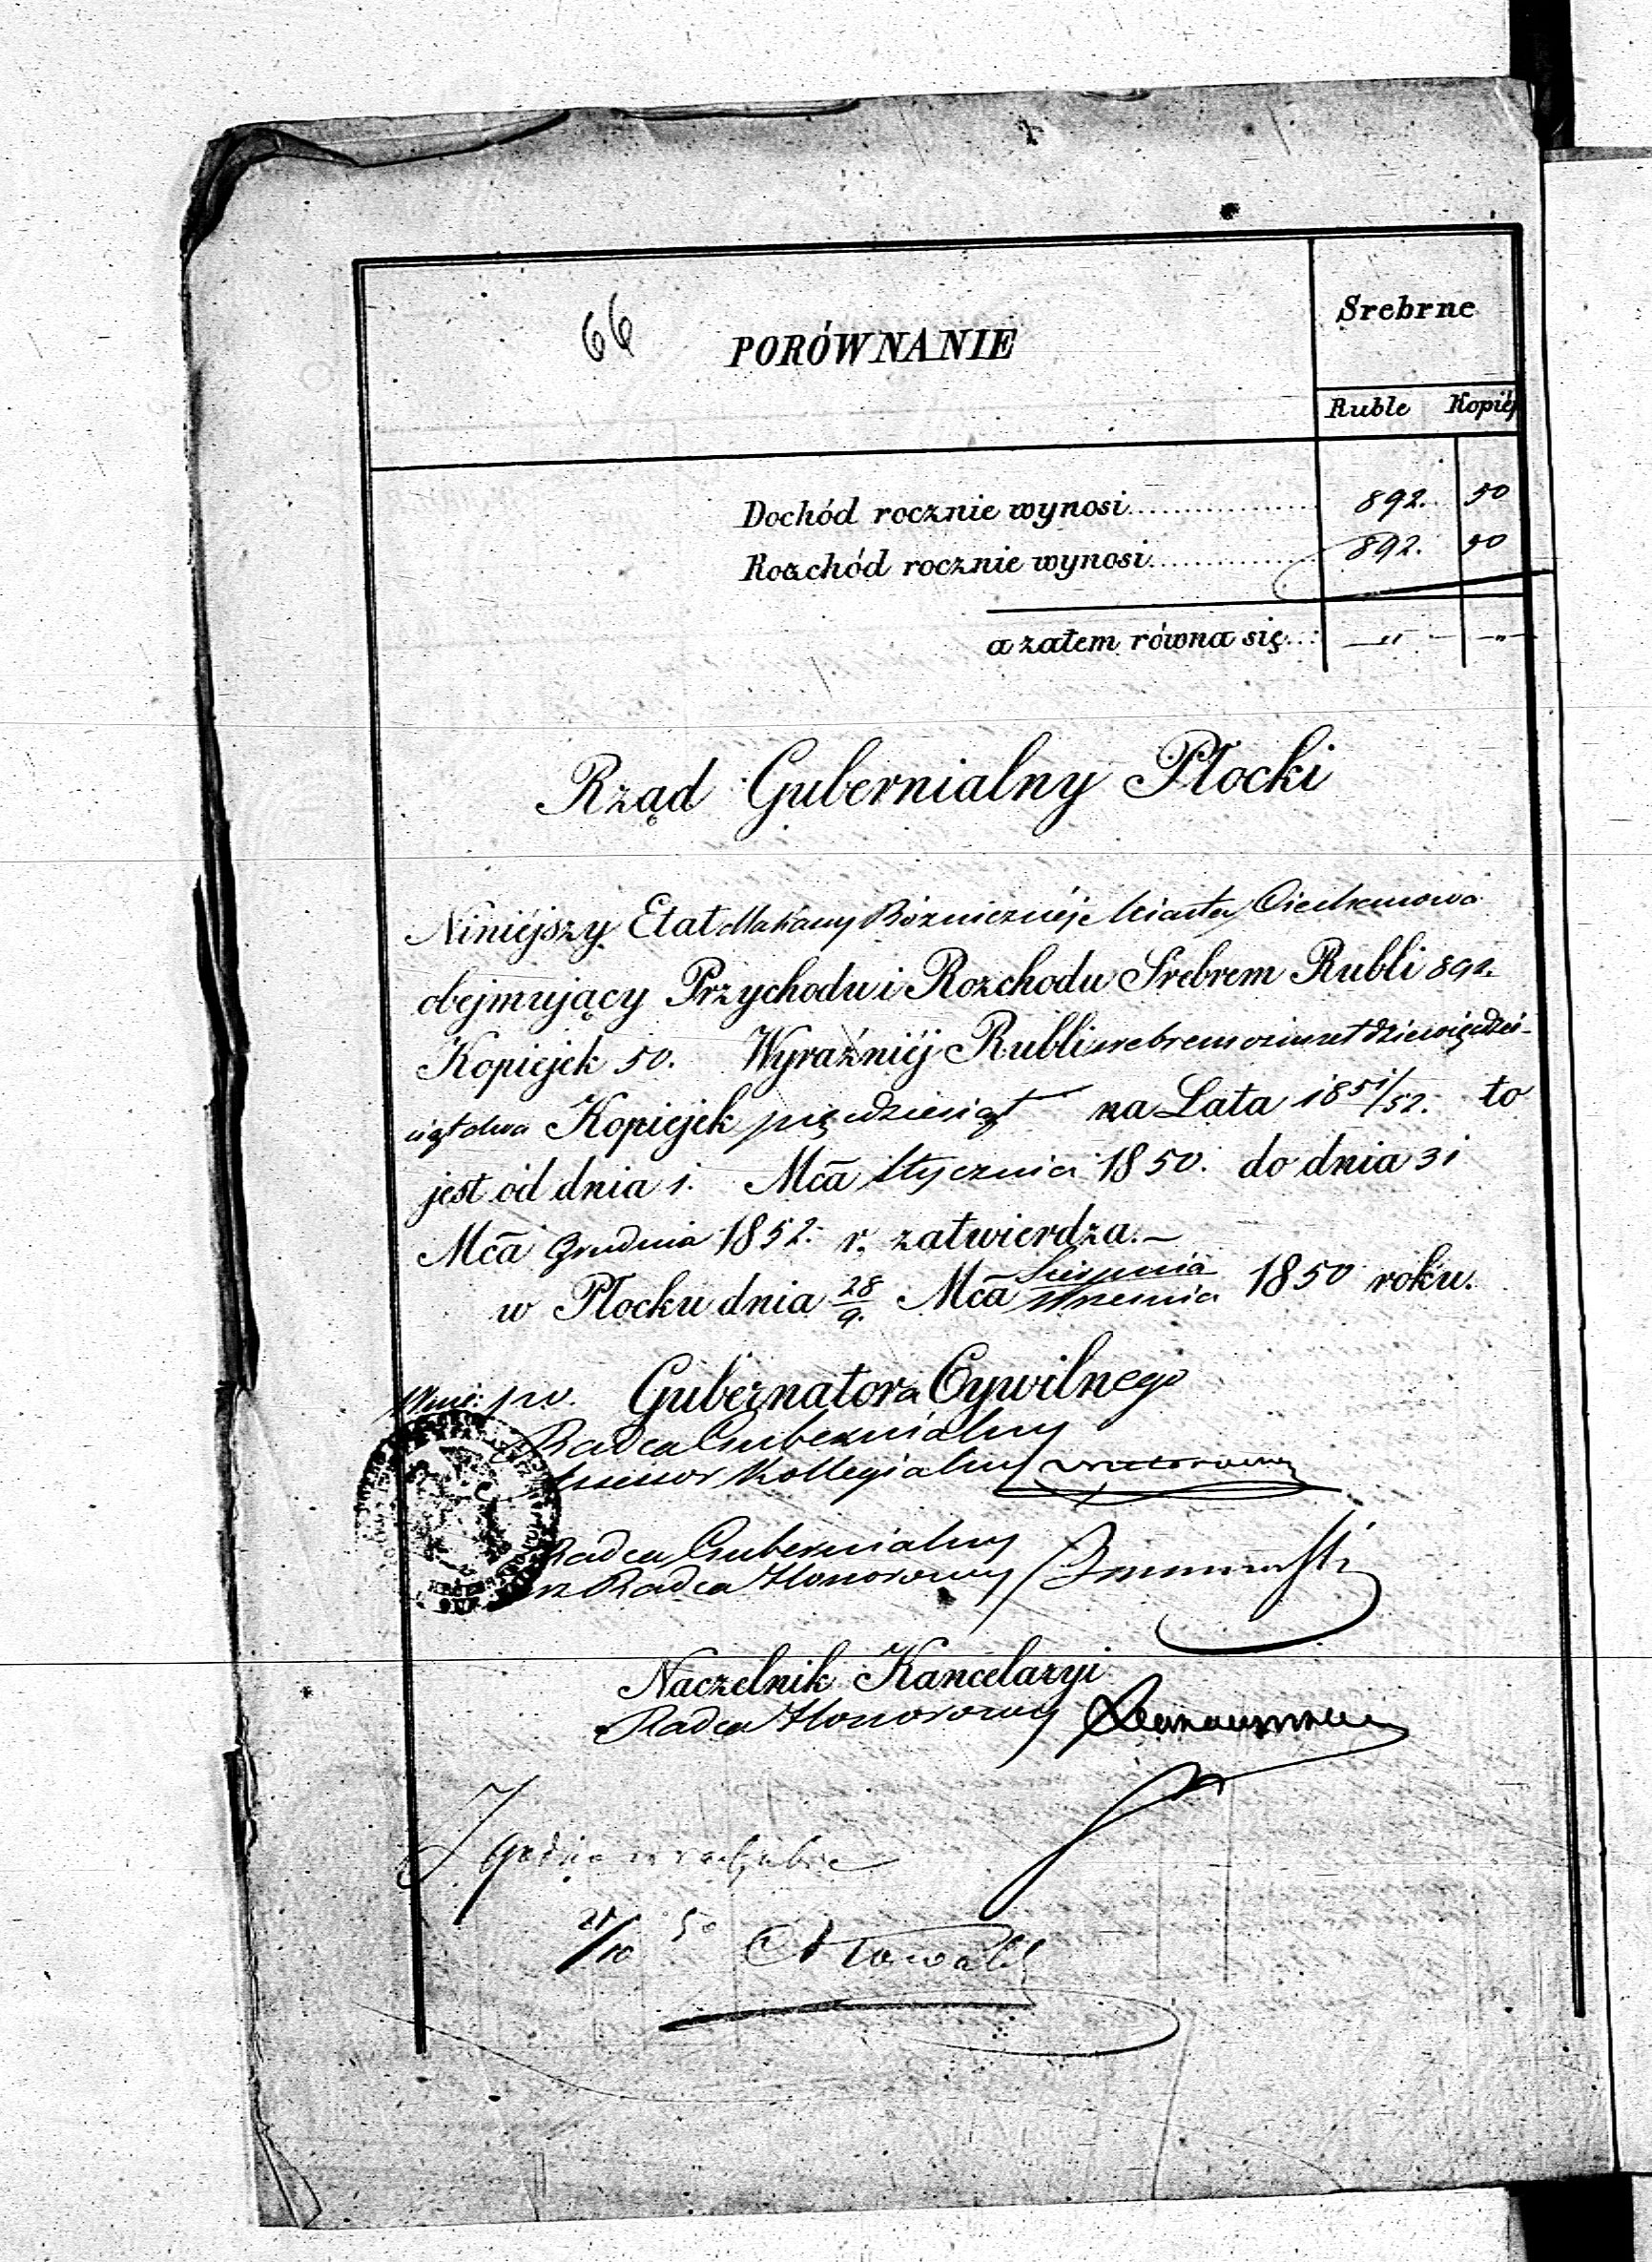 66
PORÓWNANIE
Srebrne
Ruble Kopiéj
Dochód rocznie wynosi 892. 50
Rozchód rocznie wynosi 892. 50
a zatem równa się — " — " —
Rząd Gubernialny Płocki
Niniéjszy Etat dla Kassy Bóżnicznéj Miasta Ciechanowa
obejmujący Przychodu i Rozchodu Srebrem Rubli 892.
Kopiejek 50. Wyraźniéj Rubli srebrem ośmset dziewięćdzie-
siąt dwa Kopiejek pięćdziesiąt na Lata 1851/52. to
jest od dnia 1. Mca Stycznia 1850. do dnia 31
Mca Grudnia 1852. r. zatwierdza.—
w Płocku dnia 28/9. Mca Sierpnia/Września 1850 roku.
Gubernatora Cywilnego
Radca Gubernialny
Assessor Kollegialny
Radca Gubernialny
Radca Honorowy
Naczelnik Kancelaryi
Radca Honorowy
50